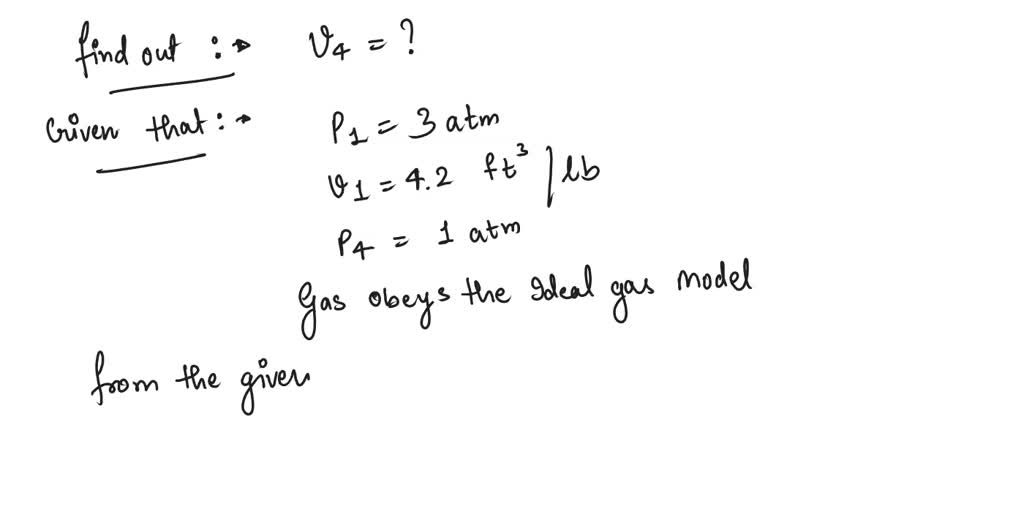 find out :→ V4 = ?
Given that :→ P1 = 3 atm
V1 = 4.2 ft³ / lb
P4 = 1 atm
Gas obeys the Ideal gas model
from the given